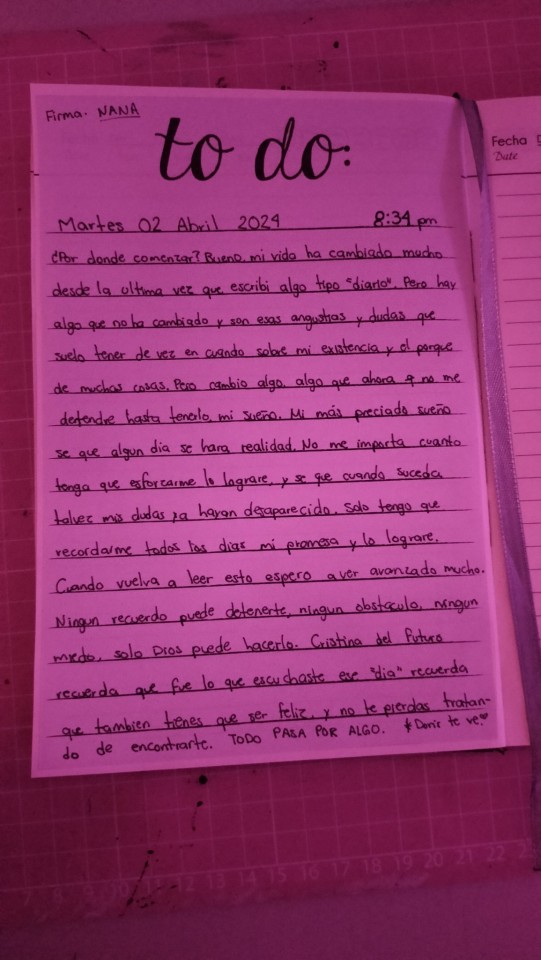 Firma. NANA
to do:
Fecha
Date
Martes 02 Abril 2024 8:34 pm
¿Por donde comenzar? Bueno, mi vida ha cambiado mucho
desde la ultima vez que escribi algo tipo "diario". Pero hay
algo que no ha cambiado y son esas angustias y dudas que
suelo tener de vez en cuando sobre mi existencia y el porque
de muchas cosas. Pero cambio algo, algo que ahora no me
detendre hasta tenerlo, mi sueño. Mi más preciado sueño
se que algun dia se hara realidad, No me importa cuanto
tenga que esforcarme lo lograre, y se que cuando suceda
talvez mis dudas ya hayan desaparecido. Solo tengo que
recordarme todos los dias mi promesa y lo lograre.
Cuando vuelva a leer esto espero aver avanzado mucho.
Ningun recuerdo puede detenerte, ningun obstáculo, ningun
miedo, solo Dios puede hacerlo. Cristina del futuro
recuerda que fue lo que escuchaste ese "dia" recuerda
que tambien tienes que ser feliz, y no te pierdas tratan-
do de encontrarte. TODO PASA POR ALGO. te ve!
7 8 9 10 11 12 13 14 15 16 17 18 19 20 21 22